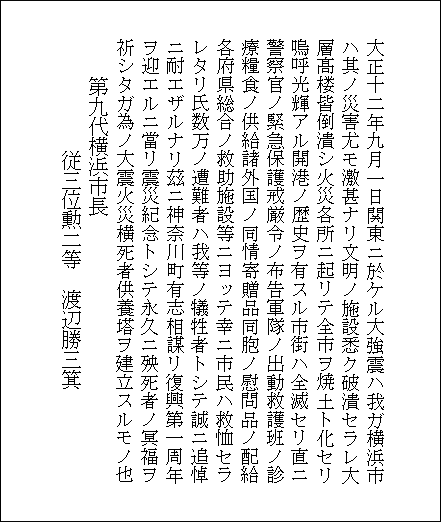 大正十二年九月一日関東ニ於ケル大強震ハ我ガ横浜市
ハ其ノ災害尤モ激甚ナリ文明ノ施設悉ク破潰セラレ大
層髙楼皆倒潰シ火災各所ニ起リテ全市ヲ焼土ト化セリ
嗚呼光輝アル開港ノ歴史ヲ有スル市街ハ全滅セリ直ニ
警察官ノ緊急保護戒厳令ノ布告軍隊ノ出動救護班ノ診
療糧食ノ供給諸外国ノ同情寄贈品同胞ノ慰問品ノ配給
各府県総合ノ救助施設等ニヨッテ幸ニ市民ハ救恤セラ
レタリ氏数万ノ遭難者ハ我等ノ犠牲者トシテ誠ニ追悼
ニ耐エザルナリ茲ニ神奈川町有志相謀リ復興第一周年
ヲ迎エルニ當リ震災紀念トシテ永久ニ殃死者ノ冥福ヲ
祈シタガ為ノ大震火災横死者供養塔ヲ建立スルモノ也
第九代横浜市長
従三位勲二等　渡辺勝三箕